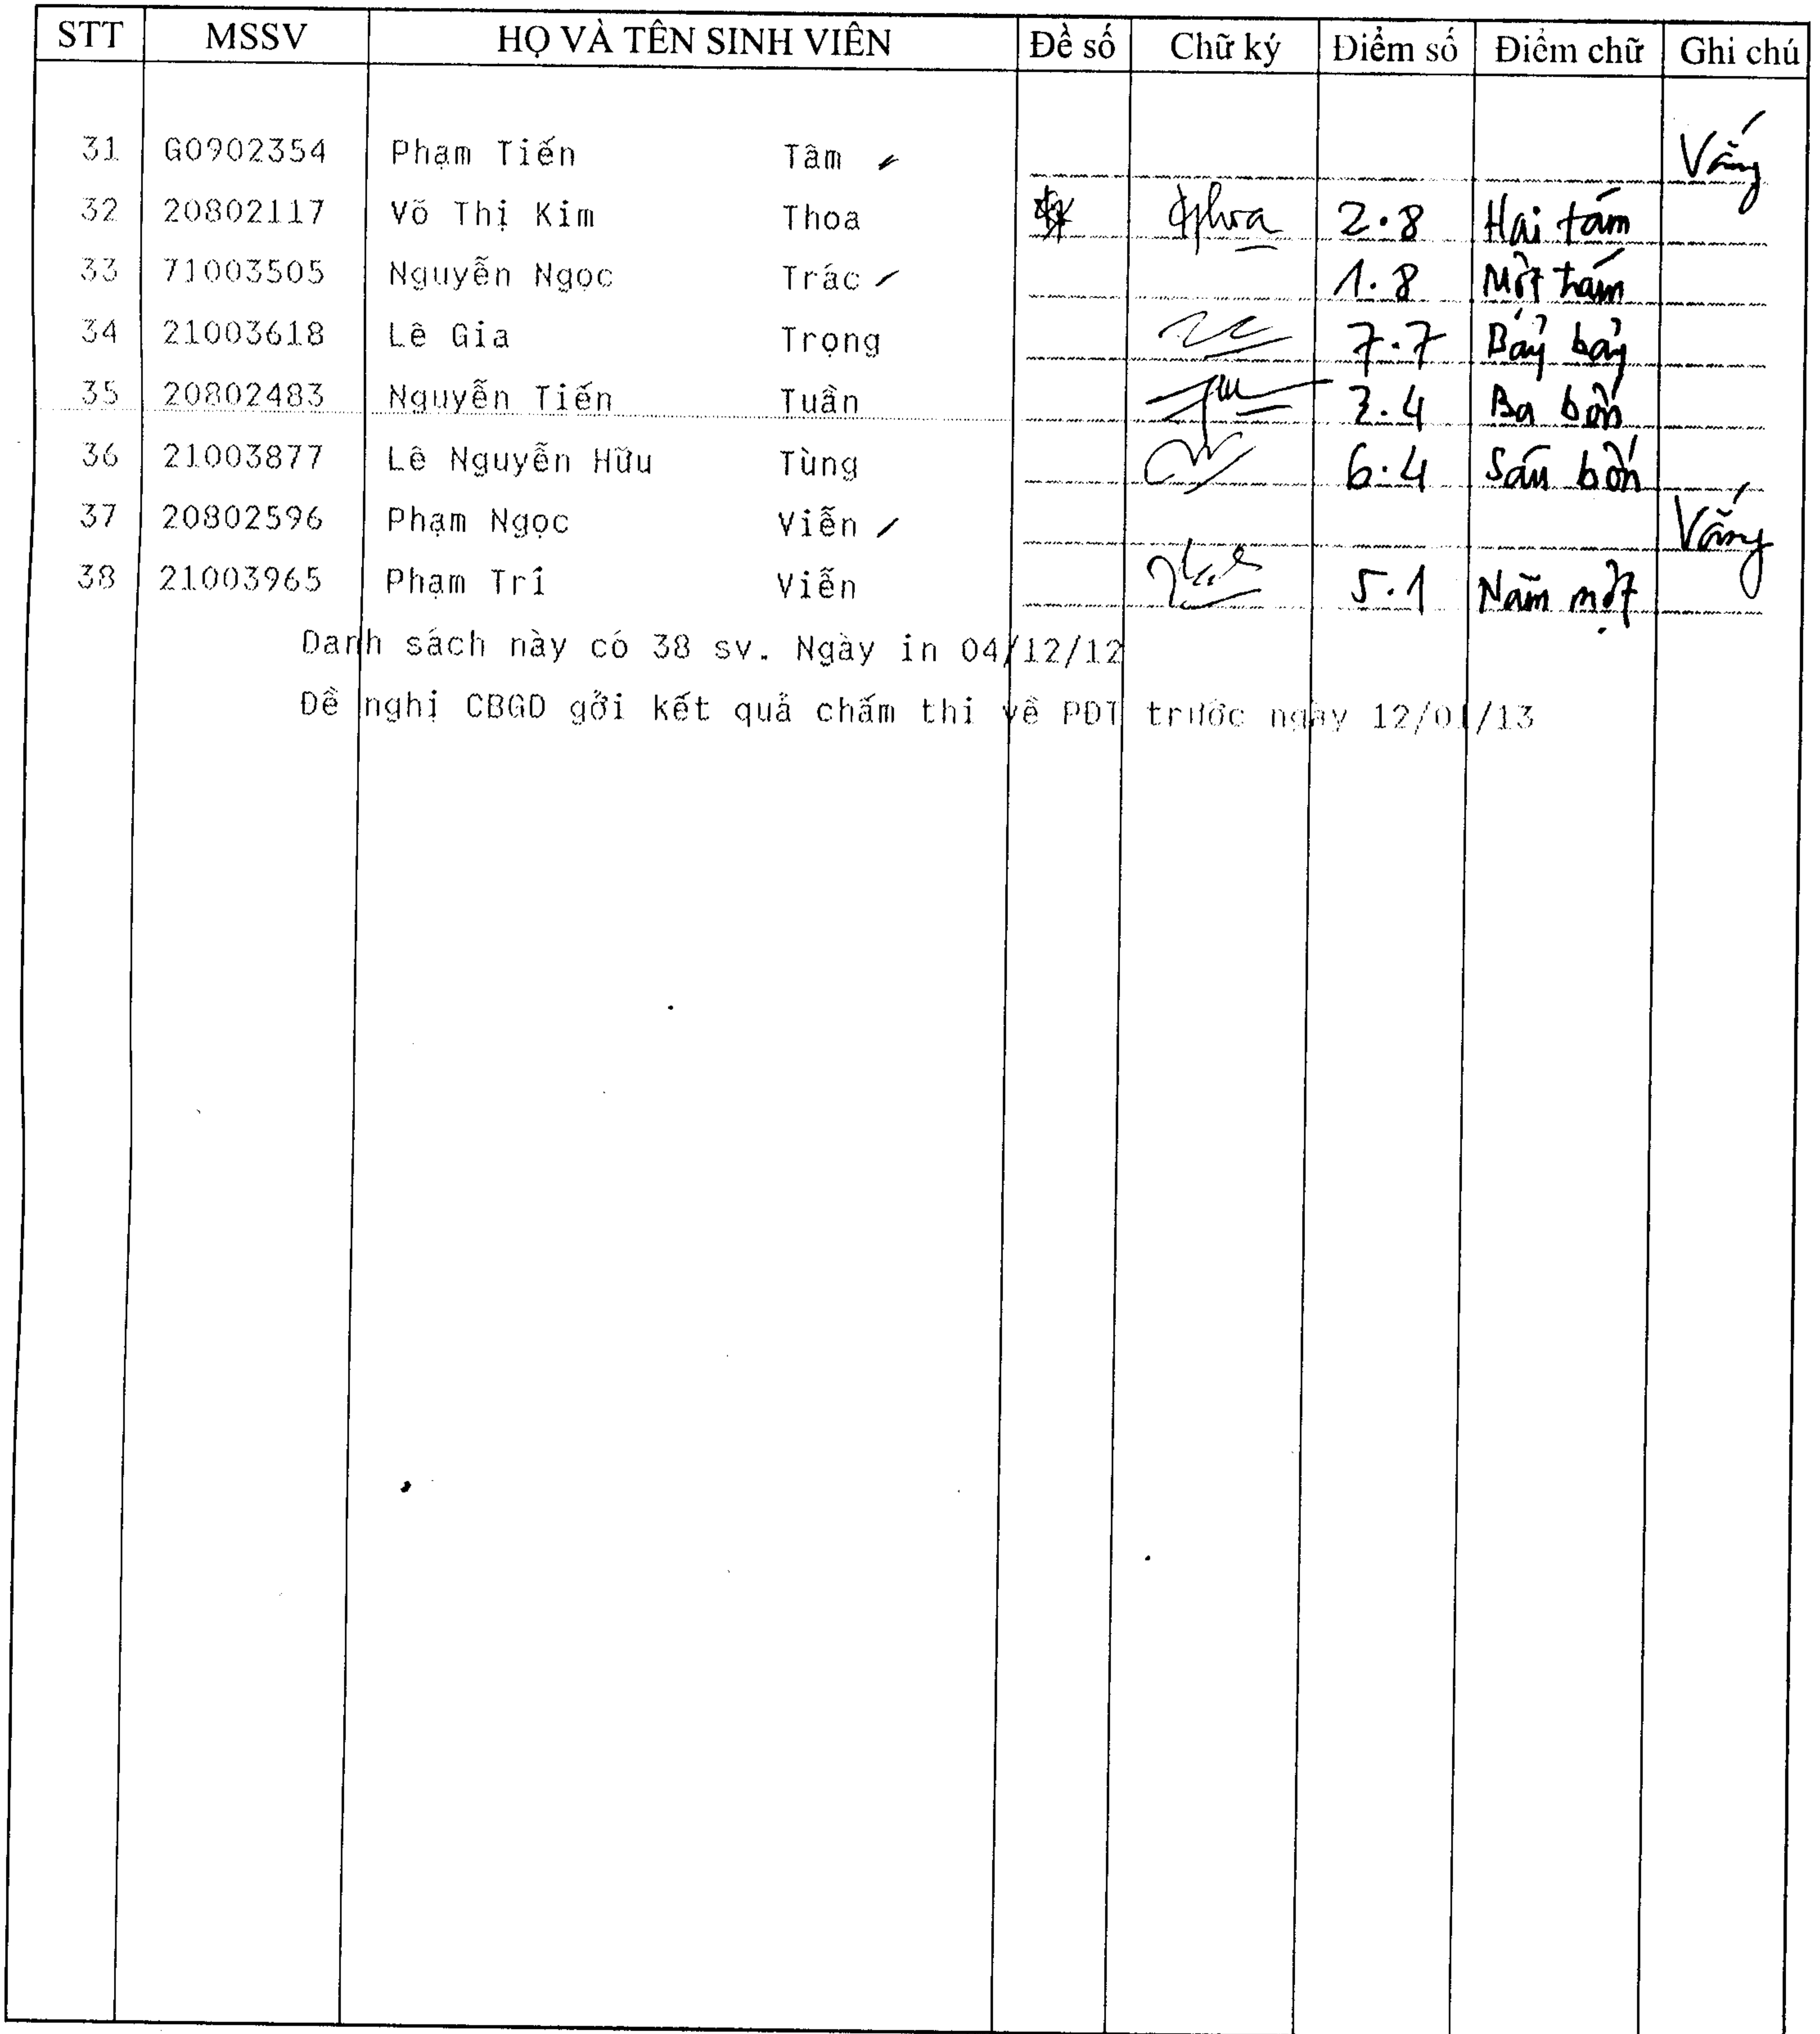 STT MSSV HỌ VÀ TÊN SINH VIÊN Đề số Chữ ký Điểm số Điểm chữ Ghi chú
31 G0902354 Phạm Tiến Tâm Vắng
32 20802117 Võ Thị Kim Thoa Thoa 2.8 Hai tám
33 71003505 Nguyễn Ngọc Trác 1.8 Một tám
34 21003618 Lê Gia Trọng 7.7 Bảy bảy
35 20802483 Nguyễn Tiến Tuần 3.4 Ba bốn
36 21003877 Lê Nguyễn Hữu Tùng 6.4 Sáu bốn
37 20802596 Phạm Ngọc Viễn Vắng
38 21003965 Phạm Trí Viễn 5.1 Năm một
Danh sách này có 38 sv. Ngày in 04/12/12
Đề nghị CBGD gởi kết quả chấm thi về PĐT trước ngày 12/01/13